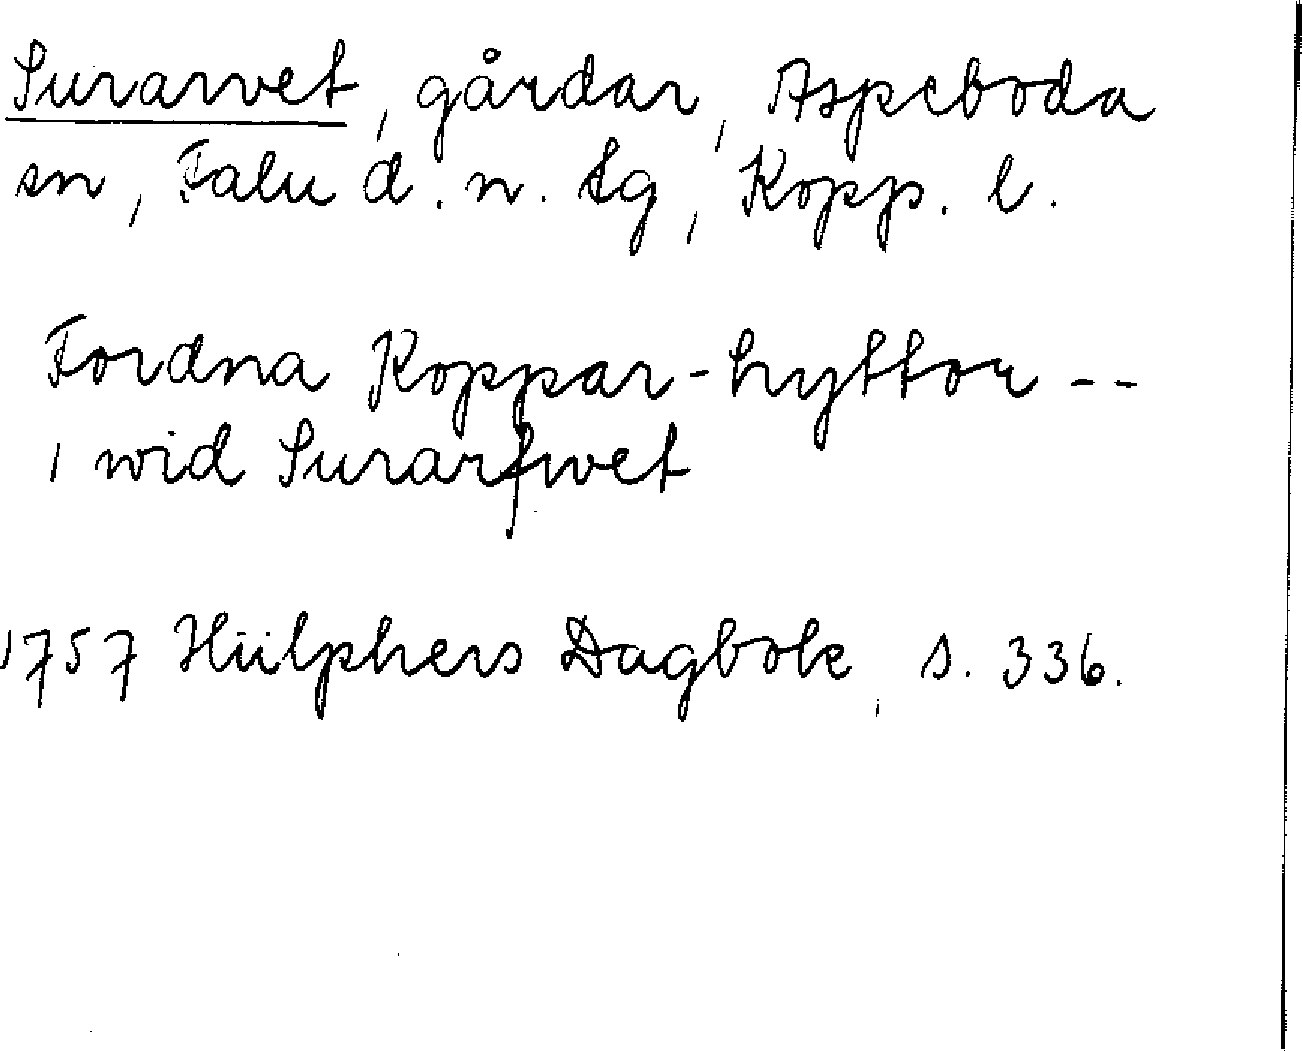 Surarvet, gårdar, Aspeboda
sn, Falu d. n. tg, Kopp. l.
Fordna Koppar-hyttor --
, wid Surarfwet
1757 Hülphers Dagbok, s. 336.